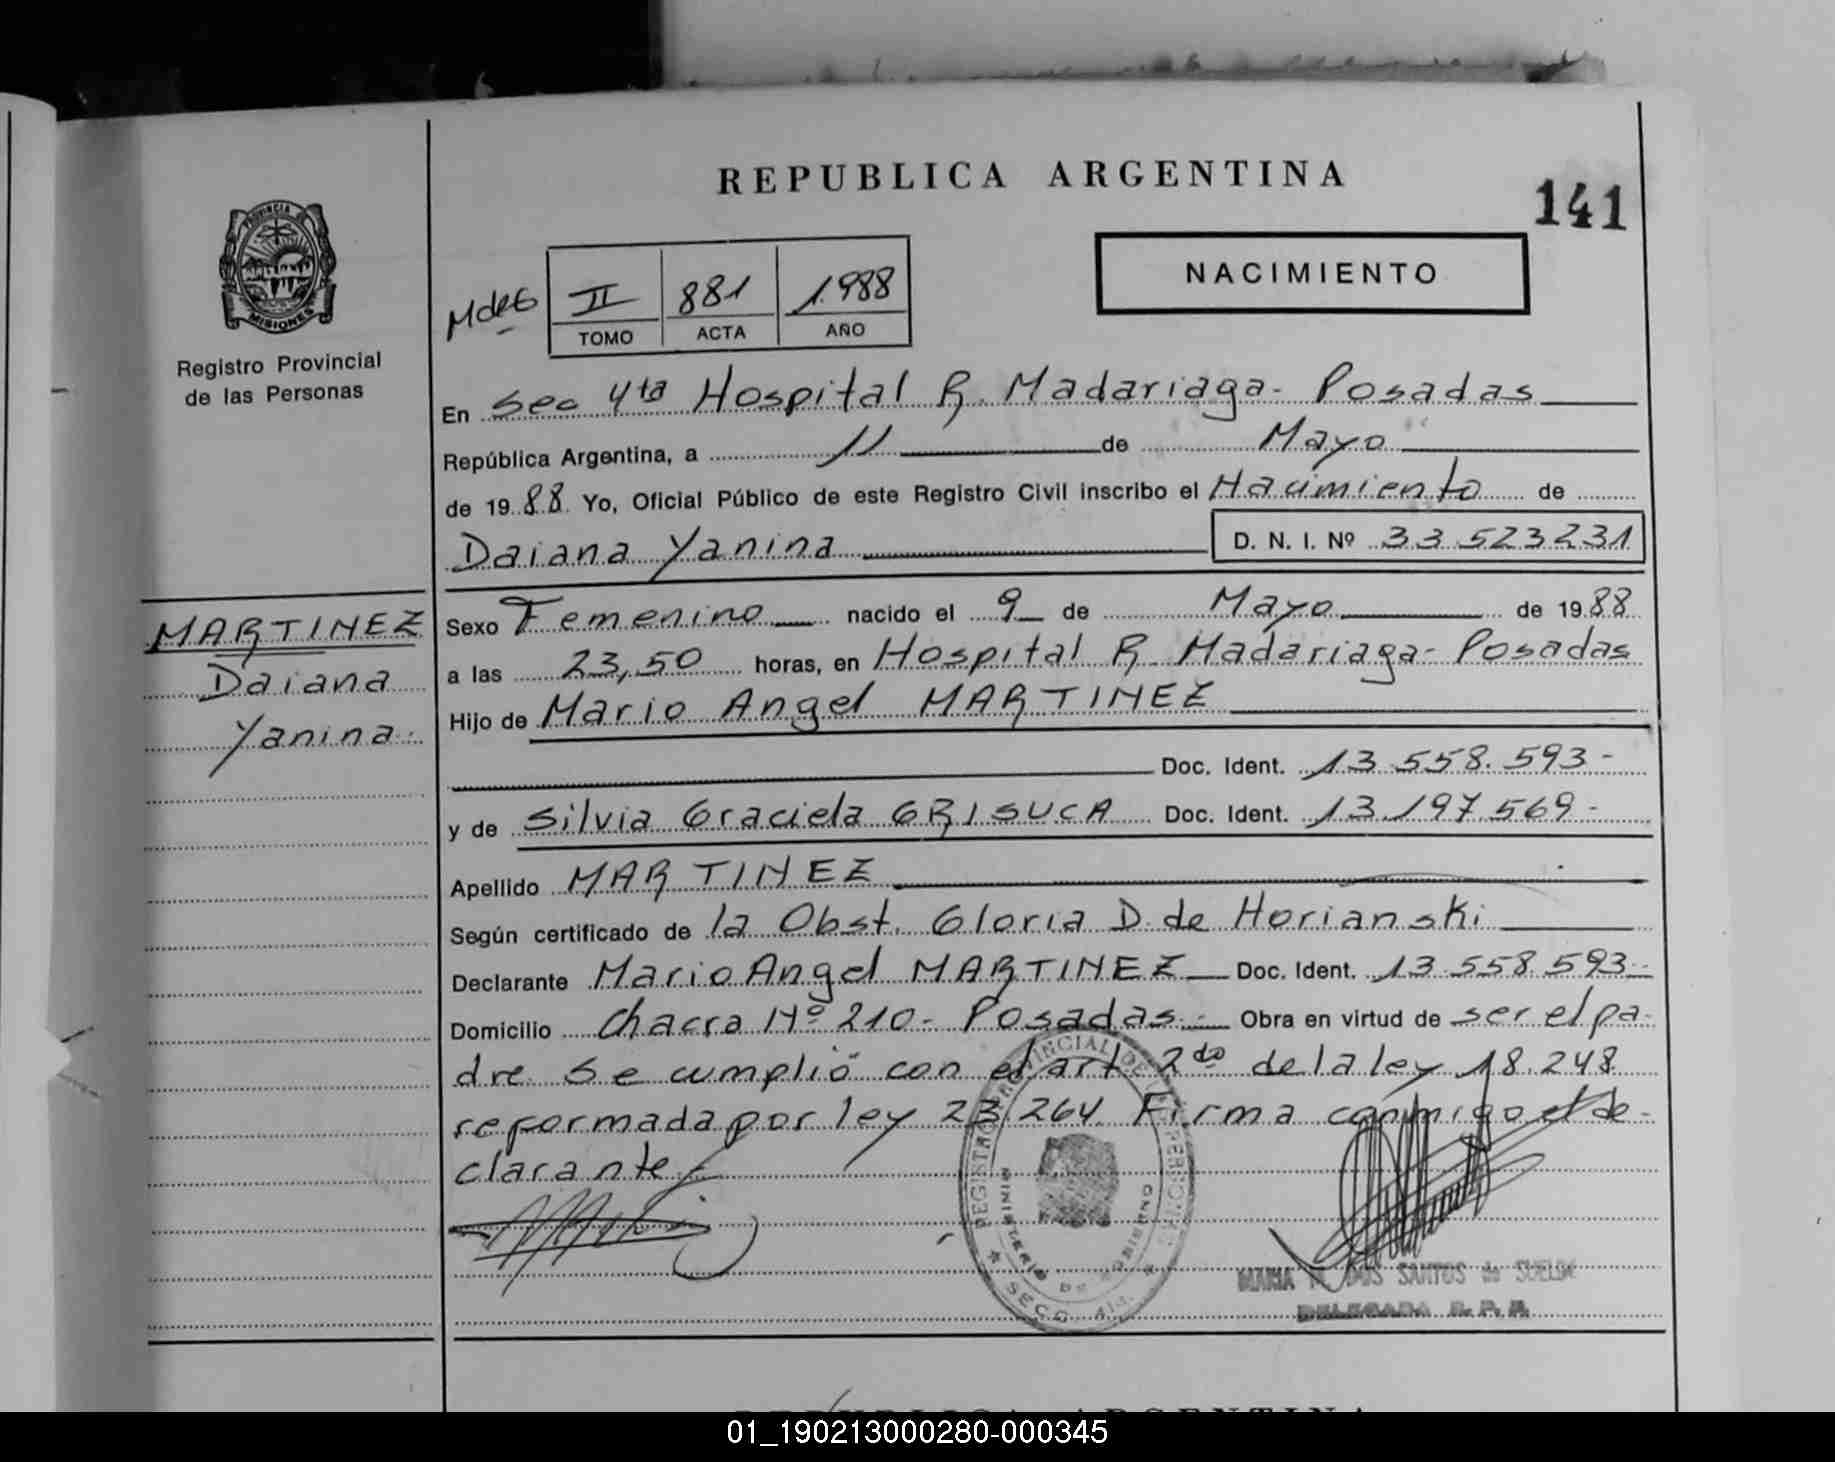 REPUBLICA ARGENTINA
141
NACIMIENTO
PROVINCIA DE
MISIONES
Registro Provincial
de las Personas
II 881 1.988
TOMO ACTA AÑO
En Sec 4ta Hospital R. Madariaga- Posadas
República Argentina, a 11 de Mayo
de 1988 Yo, Oficial Público de este Registro Civil inscribo el Nacimiento de
Daiana Yanina D. N. I. Nº 33.523.231
MARTINEZ
Daiana
Yanina.
Sexo Femenino nacido el 9 de Mayo de 1988
a las 23,50 horas, en Hospital R. Madariaga- Posadas
Hijo de Mario Angel MARTINEZ
Doc. Ident. 13.558.593-
y de Silvia Graciela GRISUCA Doc. Ident. 13.197.569-
Apellido MARTINEZ
Según certificado de la Obst. Gloria D. de Horianski
Declarante Mario Angel MARTINEZ Doc. Ident. 13.558.593-
Domicilio Chacra Nº 210- Posadas.- Obra en virtud de ser el pa-
dre. Se cumplió con el art 2do de la ley 18.248
reformada por ley 23.264. Firma conmigo el de-
clarante.-
MINISTERIO DE GOBIERNO
MARIA DOS SANTOS de SUELDE
DELEGADA R. P. P.
01_190213000280-000345